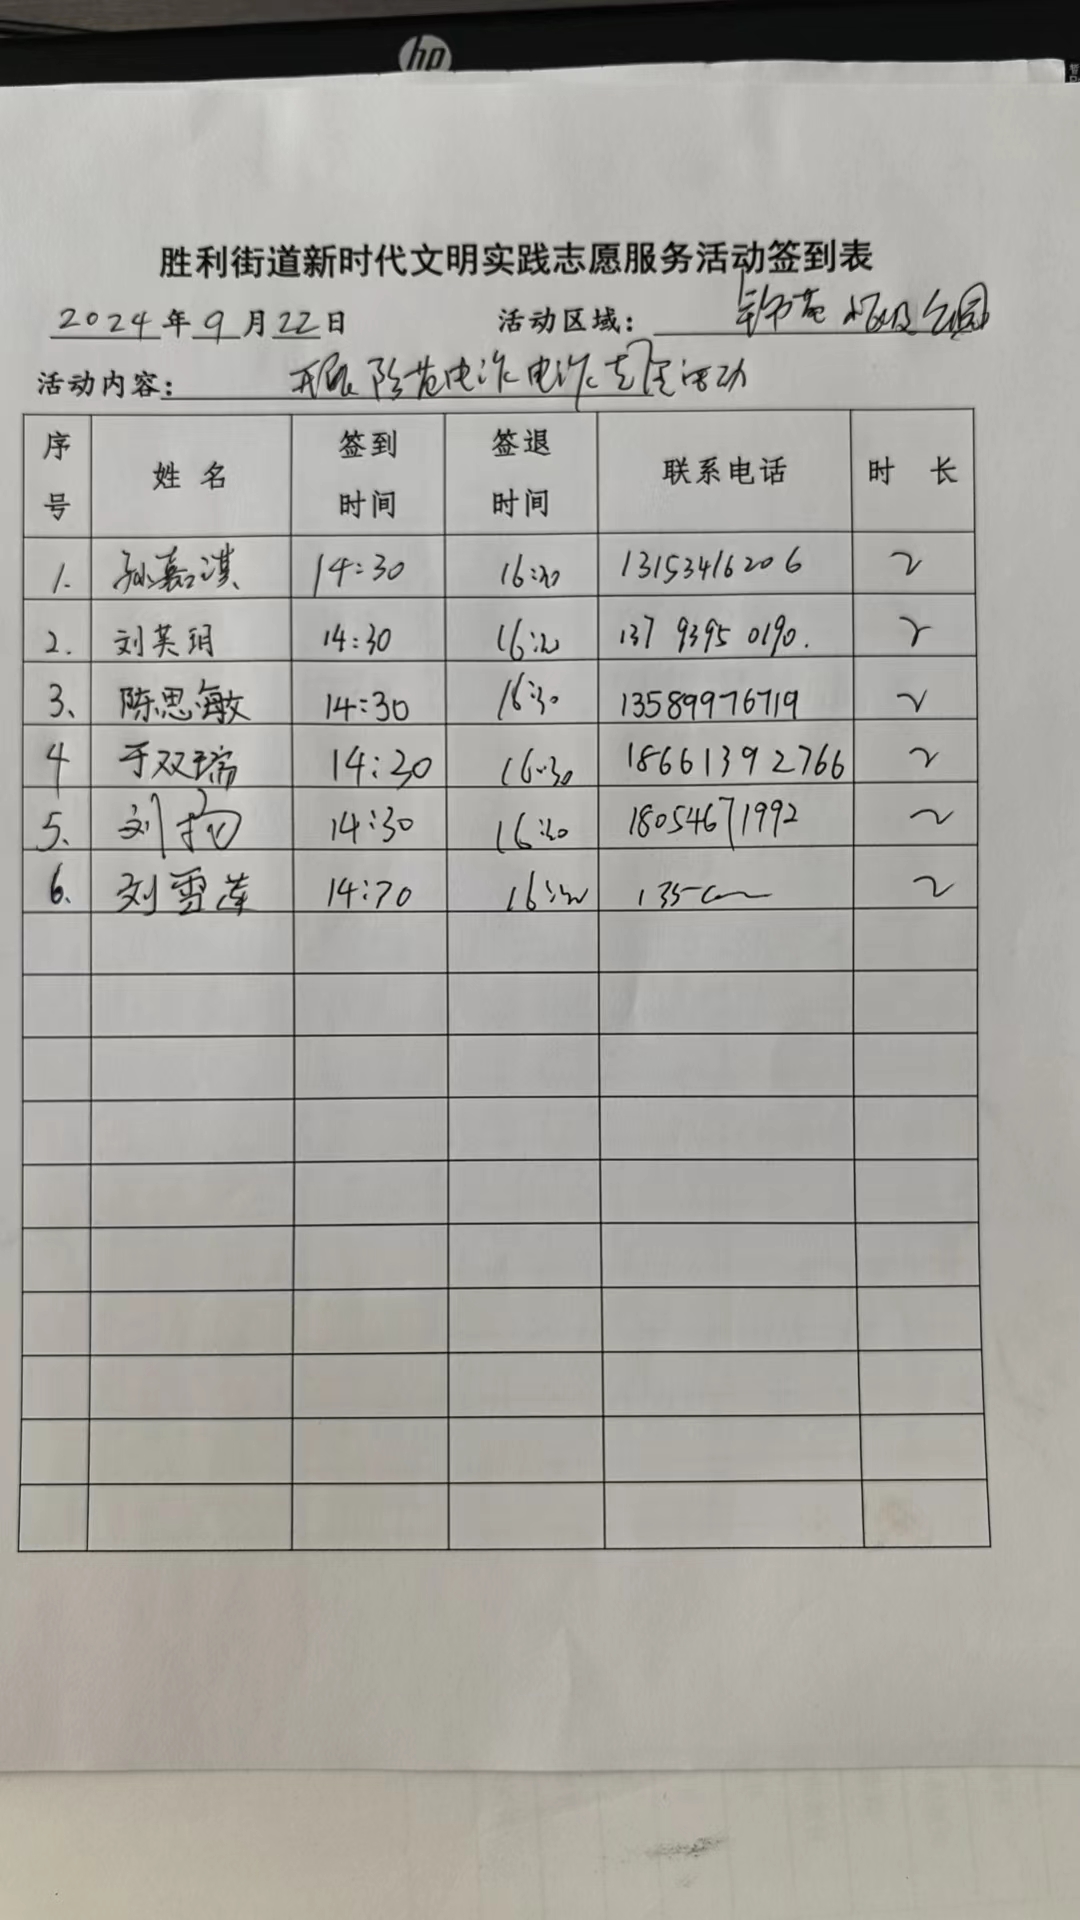 hp
胜利街道新时代文明实践志愿服务活动签到表
2024年9月22日 活动区域: 公园
活动内容: 开展防范电诈 电诈 活动
序号 姓名 签到时间 签退时间 联系电话 时长
1. 孙嘉淇 14:30 16:30 13153416206 2
2. 刘英玥 14:30 16:30 137 9395 0190. 2
3、 陈思敏 14:30 16:30 13589976719 2
4 于双瑞 14:30 16:30 18661392766 2
5、 刘扬 14:30 16:30 18054671992 2
6. 刘雪莲 14:30 16:30 135 2